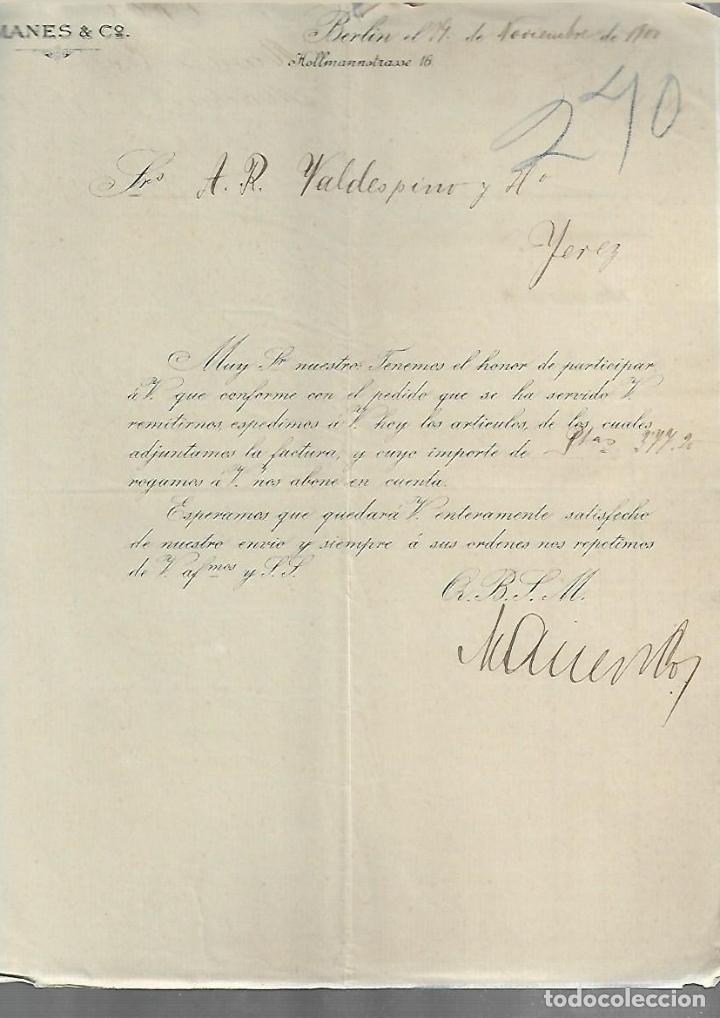 MANES & Cº.
Berlin el 14. de Noviembre de 1900
Hollmannstrasse 16
270
Srs A. R. Valdespino y Hº
Jerez
Muy Sr nuestro: Tenemos el honor de participar
á V. que conforme con el pedido que se ha servido V.
remitirnos, espedimos á V. hoy los articulos, de los cuales
adjuntamos la factura, y cuyo importe de Ptas
rogamos á V. nos abone en cuenta.
Esperamos que quedará V. enteramente satisfecho
de nuestro envio y siempre á sus ordenes nos repetimos
de V. afmos y S. S.
Q. B. S. M.
Manes & Co
todocoleccion